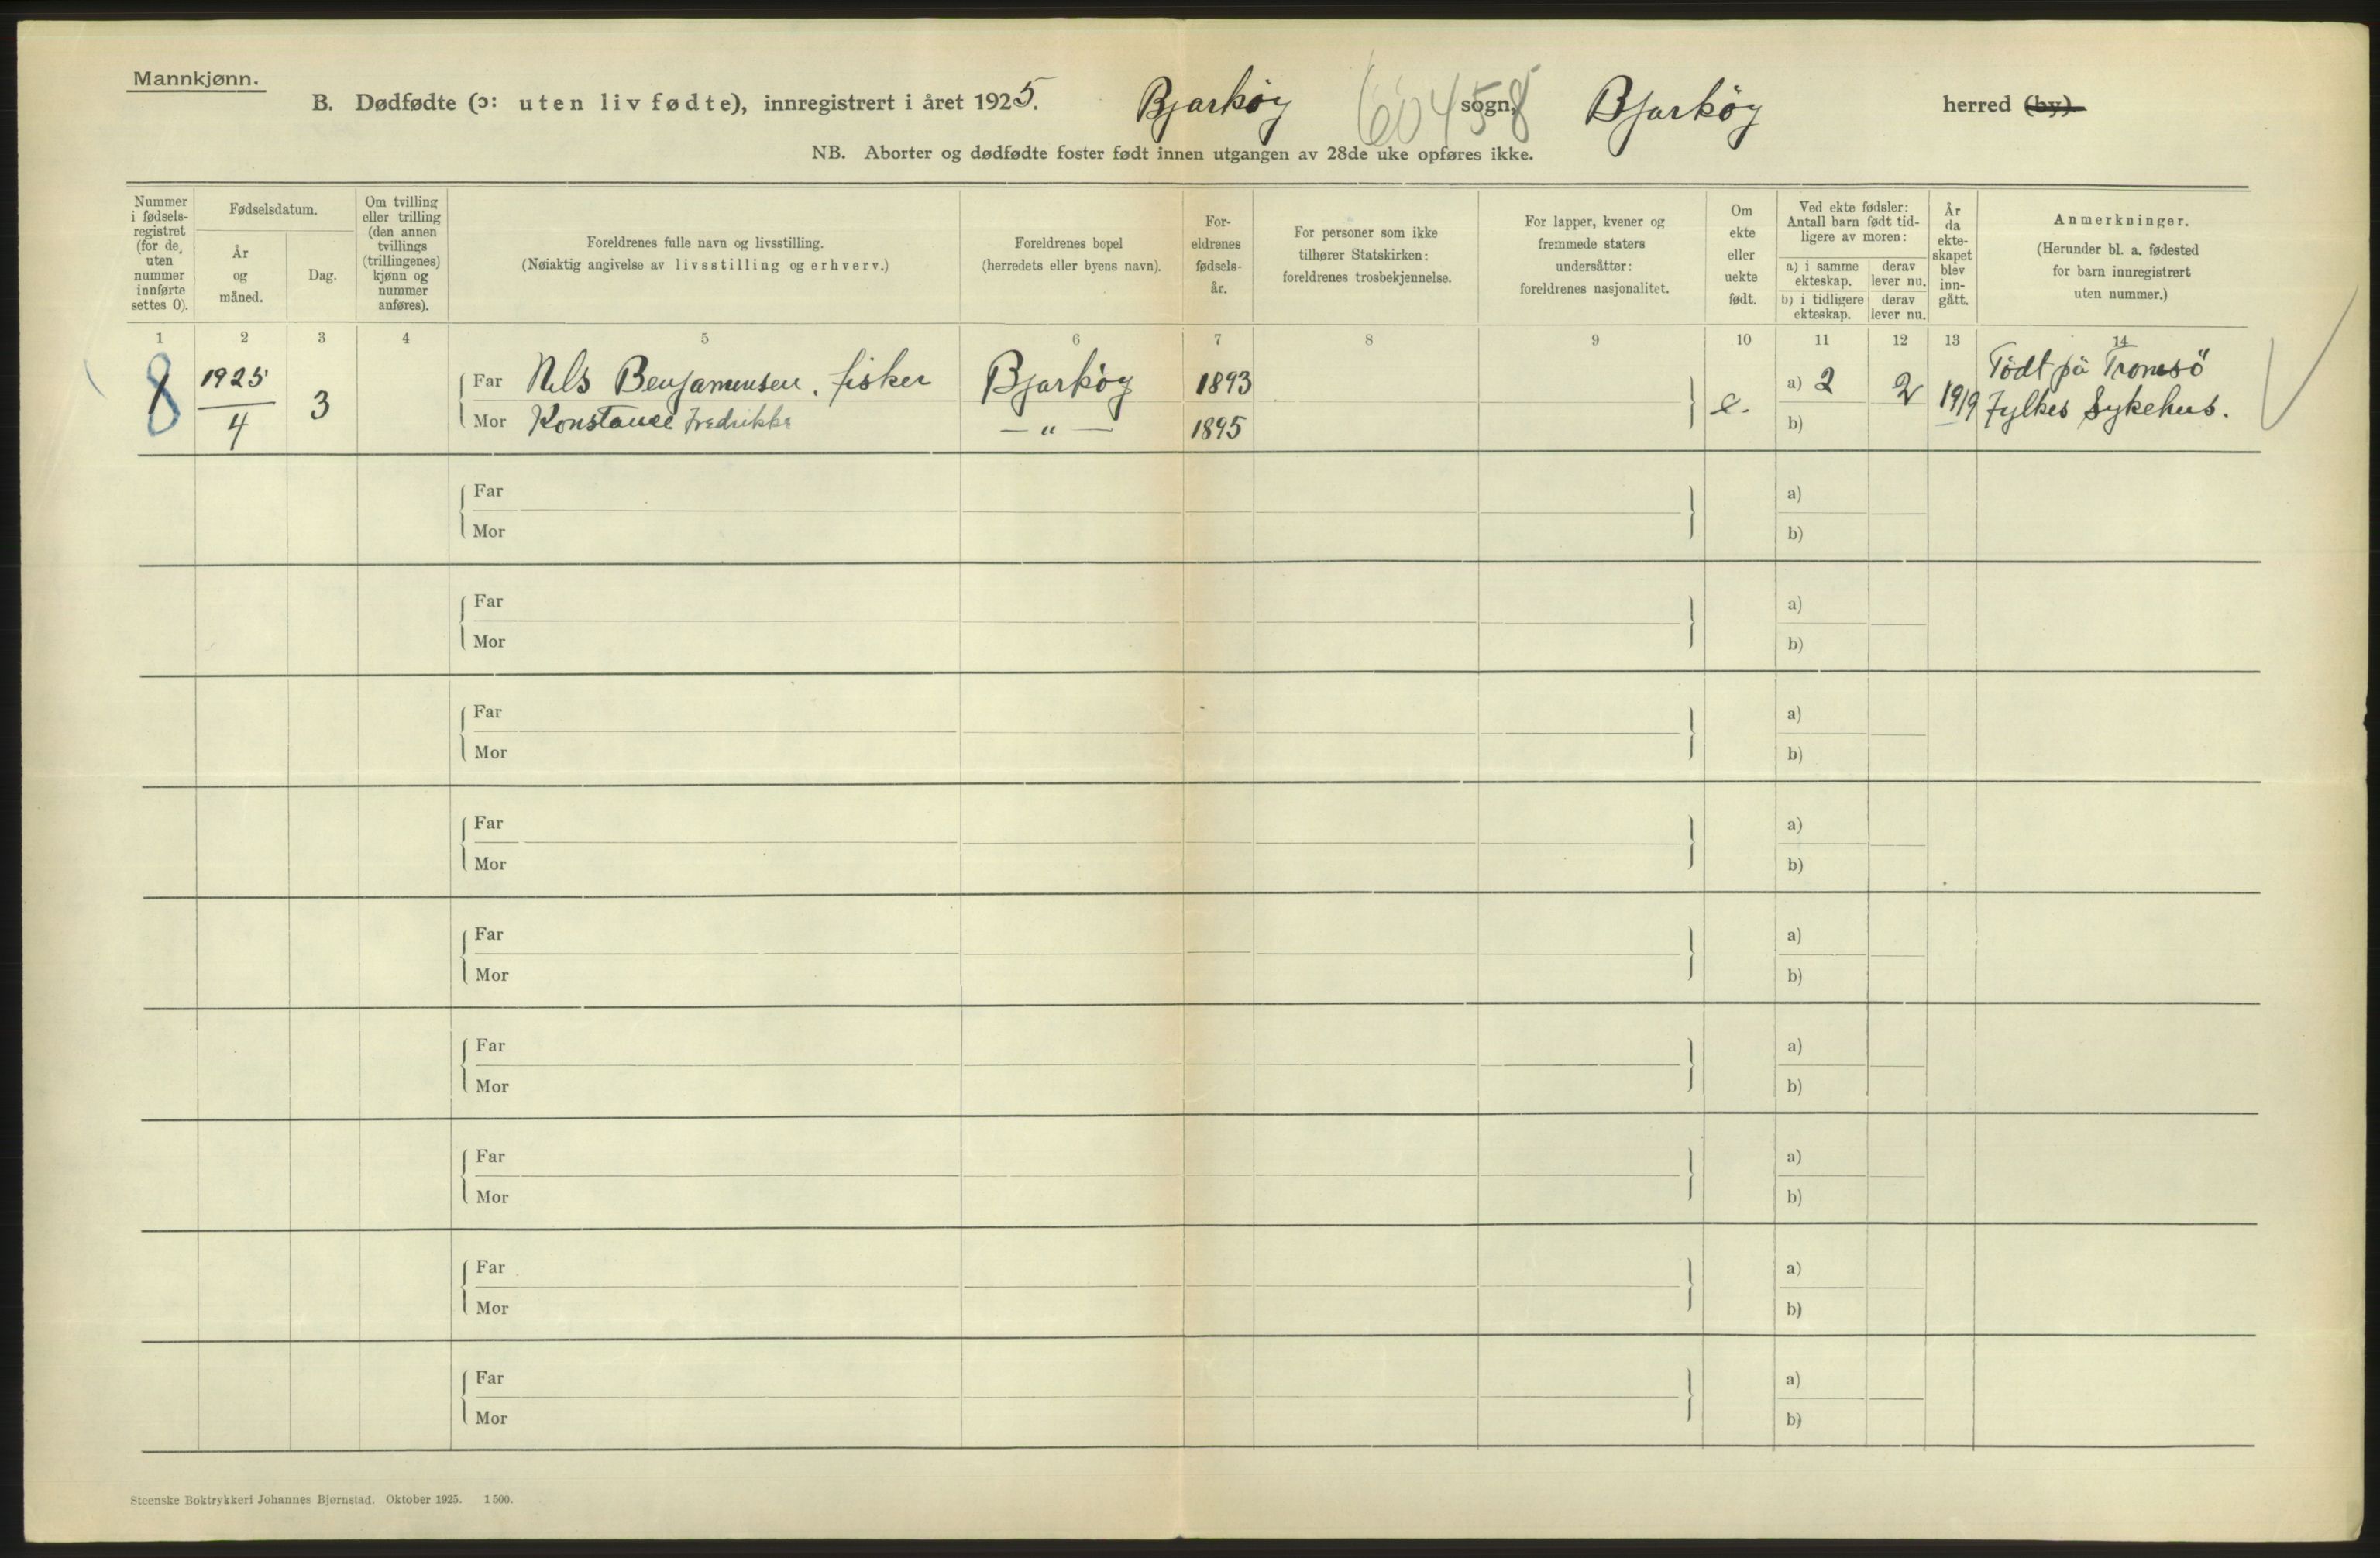 Mannkjønn.
B. Dødfødte (ɔ: uten liv fødte), innregistrert i året 1925. Bjarkøy sogn, Bjarkøy herred (by).
60458
NB. Aborter og dødfødte foster født innen utgangen av 28de uke opføres ikke.
Nummer i fødsels-registret (for de uten nummer innførte settes 0).
Fødselsdatum.
År og måned.
Dag.
Om tvilling eller trilling (den annen tvillings (trillingenes) kjønn og nummer anføres).
Foreldrenes fulle navn og livsstilling.
(Nøiaktig angivelse av livsstilling og erhverv.)
Foreldrenes bopel
(herredets eller byens navn).
For-eldrenes fødsels-år.
For personer som ikke tilhører Statskirken: foreldrenes trosbekjennelse.
For lapper, kvener og fremmede staters undersåtter: foreldrenes nasjonalitet.
Om ekte eller uekte født.
Ved ekte fødsler: Antall barn født tid-ligere av moren:
a) i samme ekteskap.
derav lever nu.
b) i tidligere ekteskap.
derav lever nu.
År da ekte-skapet blev inn-gått.
Anmerkninger.
(Herunder bl. a. fødested for barn innregistrert uten nummer.)
1 2 3 4 5 6 7 8 9 10 11 12 13 14
8 1925 4 3
Far Nils Benjaminsen, fisker Bjarkøy 1893
Mor Konstance Fredrikke — " — 1895
e. a) 2 2 1919
b)
Födt på Tromsö
Fylkes Sykehus.
Far a)
Mor b)
Far a)
Mor b)
Far a)
Mor b)
Far a)
Mor b)
Far a)
Mor b)
Far a)
Mor b)
Far a)
Mor b)
Far a)
Mor b)
Far a)
Mor b)
Steenske Boktrykkeri Johannes Bjørnstad. Oktober 1925. 1500.